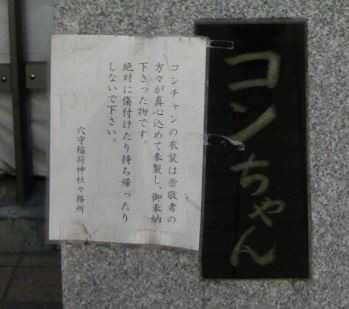 コンちゃん
コンチャンの衣装は崇敬者の
方々が真心込めて奉製し、御奉納
下さった物です。
絶対に傷付けたり持ち帰ったり
しないで下さい。
穴守稲荷神社々務所